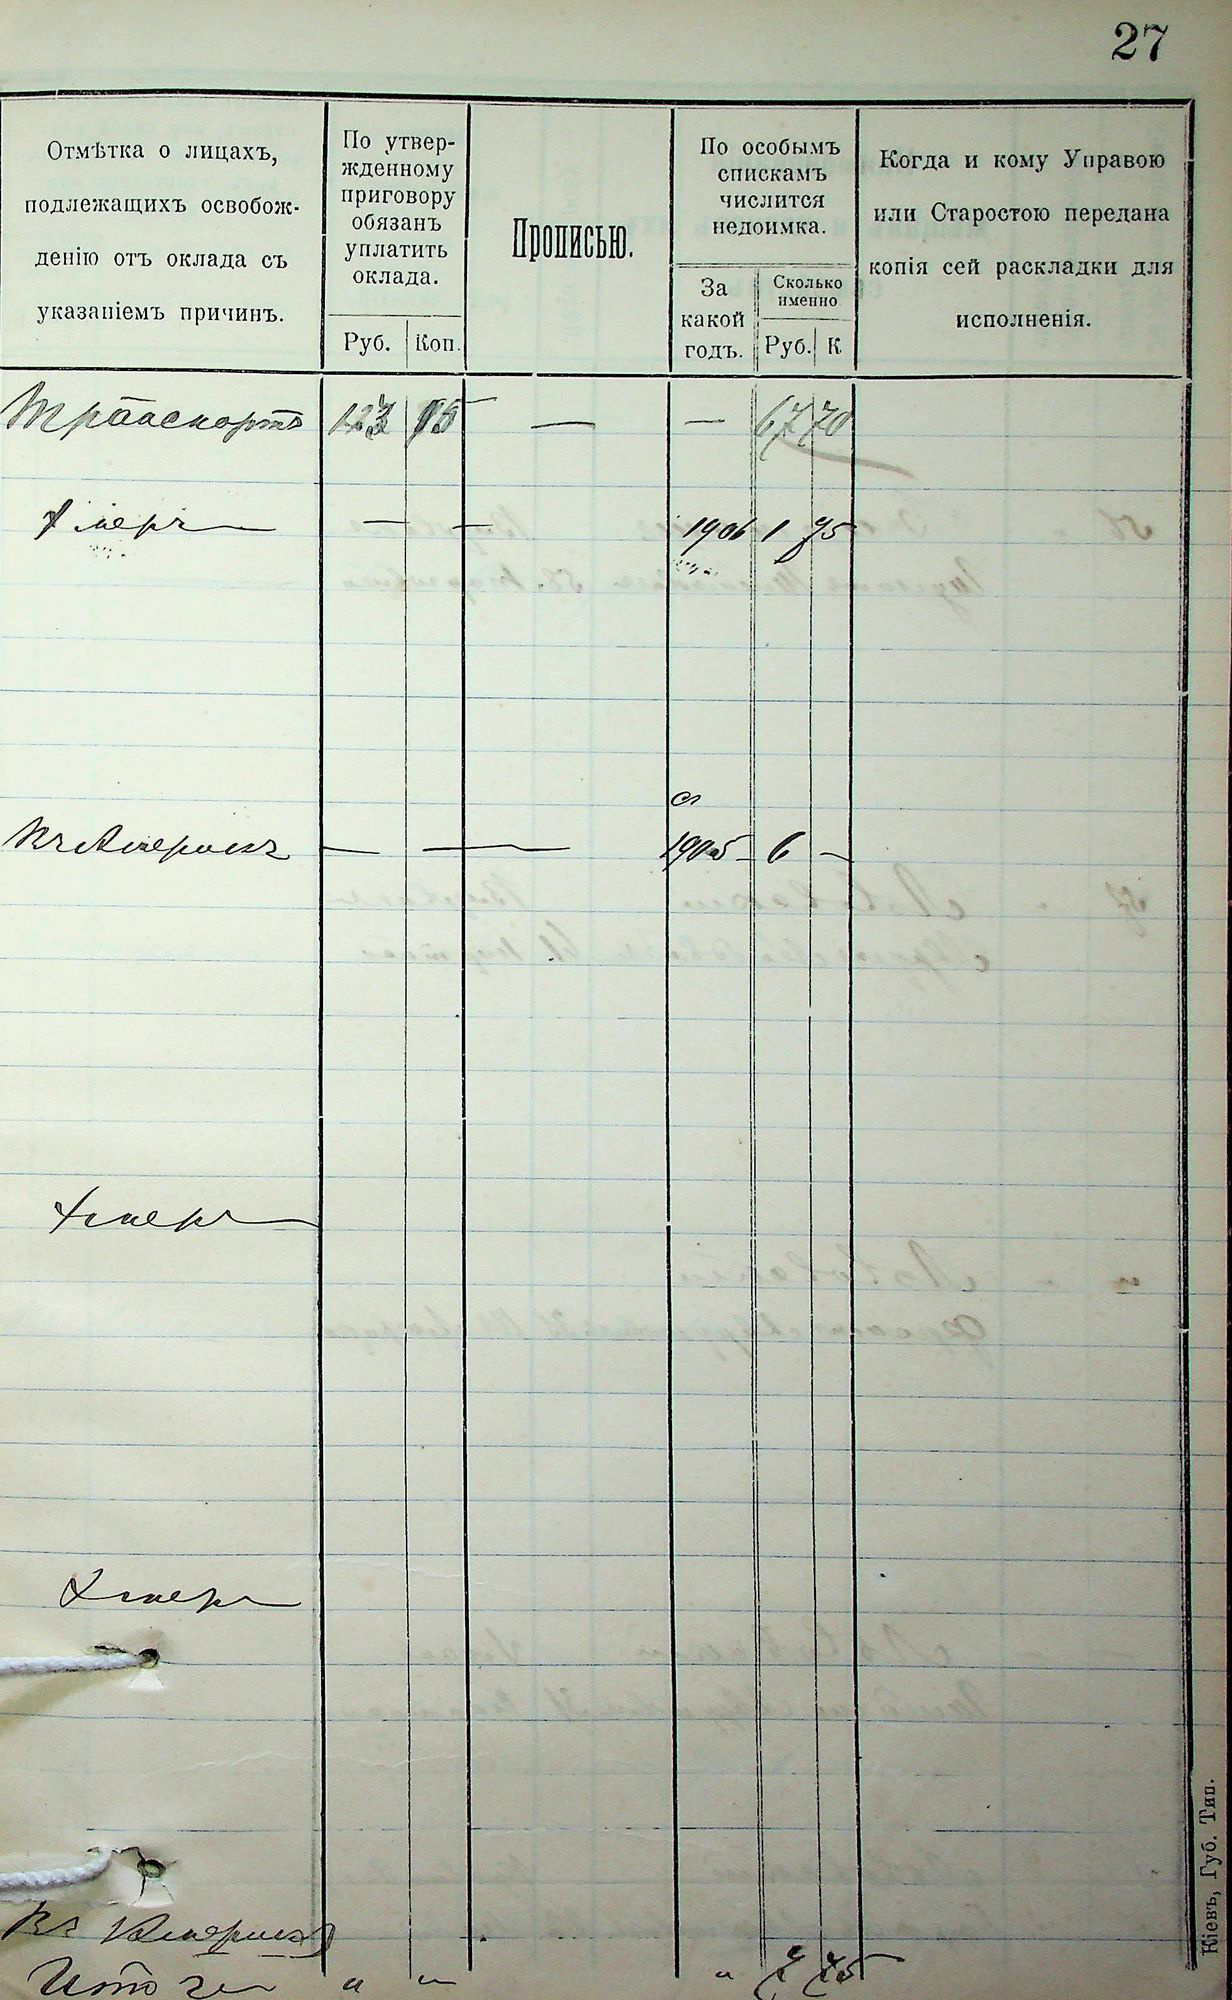 27
Отмѣтка о лицахъ,
подлежащихъ освобож-
денію отъ оклада съ
указаніемъ причинъ.
По утвер-
жденному
приговору
обязанъ
уплатить
оклада.
Руб. Коп.
Прописью.
По особымъ
спискамъ
числится
недоимка.
За
какой
годъ.
Сколько
именно
Руб. К
Когда и кому Управою
или Старостою передана
копія сей раскладки для
исполненія.
Транспортъ — — 67 70
Умеръ — — 1906 1 75
Въ Америкѣ — — 1905 6 —
Умеръ
Умеръ
Въ Америкѣ
Итого " " " 7 75
Кіевъ, Губ. Тип.